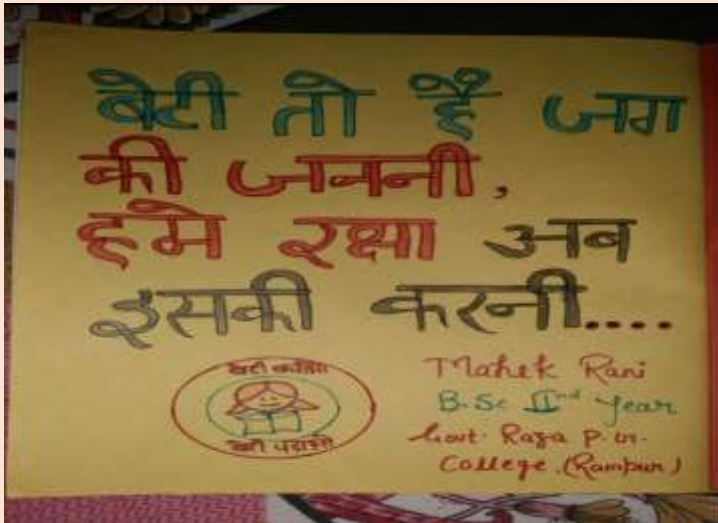 बेटी तो है जग
की जननी,
हमे रक्षा अब
इसकी करनी....
बेटी बचाओ
बेटी पढ़ाओ
Mahek Rani
B.Sc IInd year
Govt. Raza P.G.
College.(Rampur)